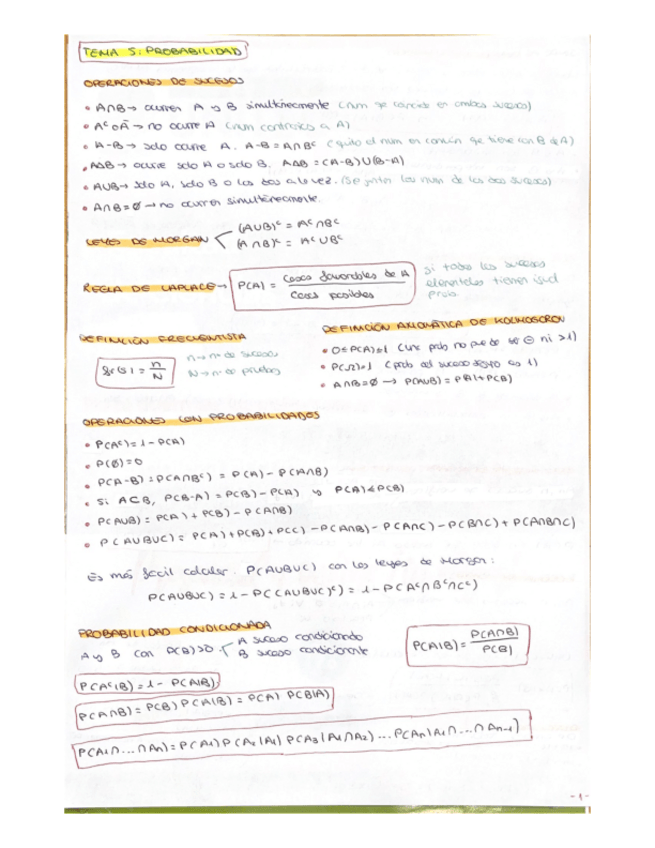 TEMA 5: PROBABILIDAD
OPERACIONES DE SUCESOS
• A∩B → ocurren A y B simultáneamente (num que coincide en ambos sucesos)
• Aᶜ o Ā → no ocurre A (num contrarios a A)
• A-B → solo ocurre A. A-B = A∩Bᶜ (quito el num en común que tiene con B de A)
• A∆B → ocurre solo A o solo B. A∆B = (A-B)∪(B-A)
• A∪B → solo A, solo B o los dos a la vez. (Se juntan los num de los dos sucesos)
• A∩B = ∅ → no ocurren simultáneamente.
LEYES DE MORGAN
(A∪B)ᶜ = Aᶜ∩Bᶜ
(A∩B)ᶜ = Aᶜ∪Bᶜ
REGLA DE LAPLACE → P(A) = Casos favorables de A / Casos posibles
si todos los sucesos
elementales tienen igual
prob.
DEFINICIÓN FRECUENTISTA
n → nº de sucesos
N → nº de pruebas
= n/N
DEFINICIÓN AXIOMÁTICA DE KOLMOGOROV
• 0≤P(A)≤1 (una prob no puede ser ⊖ ni >1)
• P(Ω)=1 (prob del suceso seguro es 1)
• A∩B=∅ → P(A∪B) = P(A)+P(B)
OPERACIONES CON PROBABILIDADES
• P(Aᶜ) = 1-P(A)
• P(∅)=0
• P(A-B) = P(A∩Bᶜ) = P(A) - P(A∩B)
• Si A⊂B, P(B-A) = P(B)-P(A) y P(A)≤P(B)
• P(A∪B) = P(A) + P(B) - P(A∩B)
• P(A∪B∪C) = P(A)+P(B)+P(C) -P(A∩B)-P(A∩C)-P(B∩C)+P(A∩B∩C)
Es más fácil calcular P(A∪B∪C) con las leyes de Morgan:
P(A∪B∪C) = 1-P((A∪B∪C)ᶜ) = 1-P(Aᶜ∩Bᶜ∩Cᶜ)
PROBABILIDAD CONDICIONADA
A y B con P(B)>0
A suceso condicionado
B suceso condicionante
P(A|B) = P(A∩B) / P(B)
P(Aᶜ|B) = 1- P(A|B)
P(A∩B) = P(B) P(A|B) = P(A) P(B|A)
P(A₁∩...∩Aₙ) = P(A₁) P(A₂|A₁) P(A₃|A₁∩A₂) ... P(Aₙ|A₁∩...∩Aₙ₋₁)
-1-